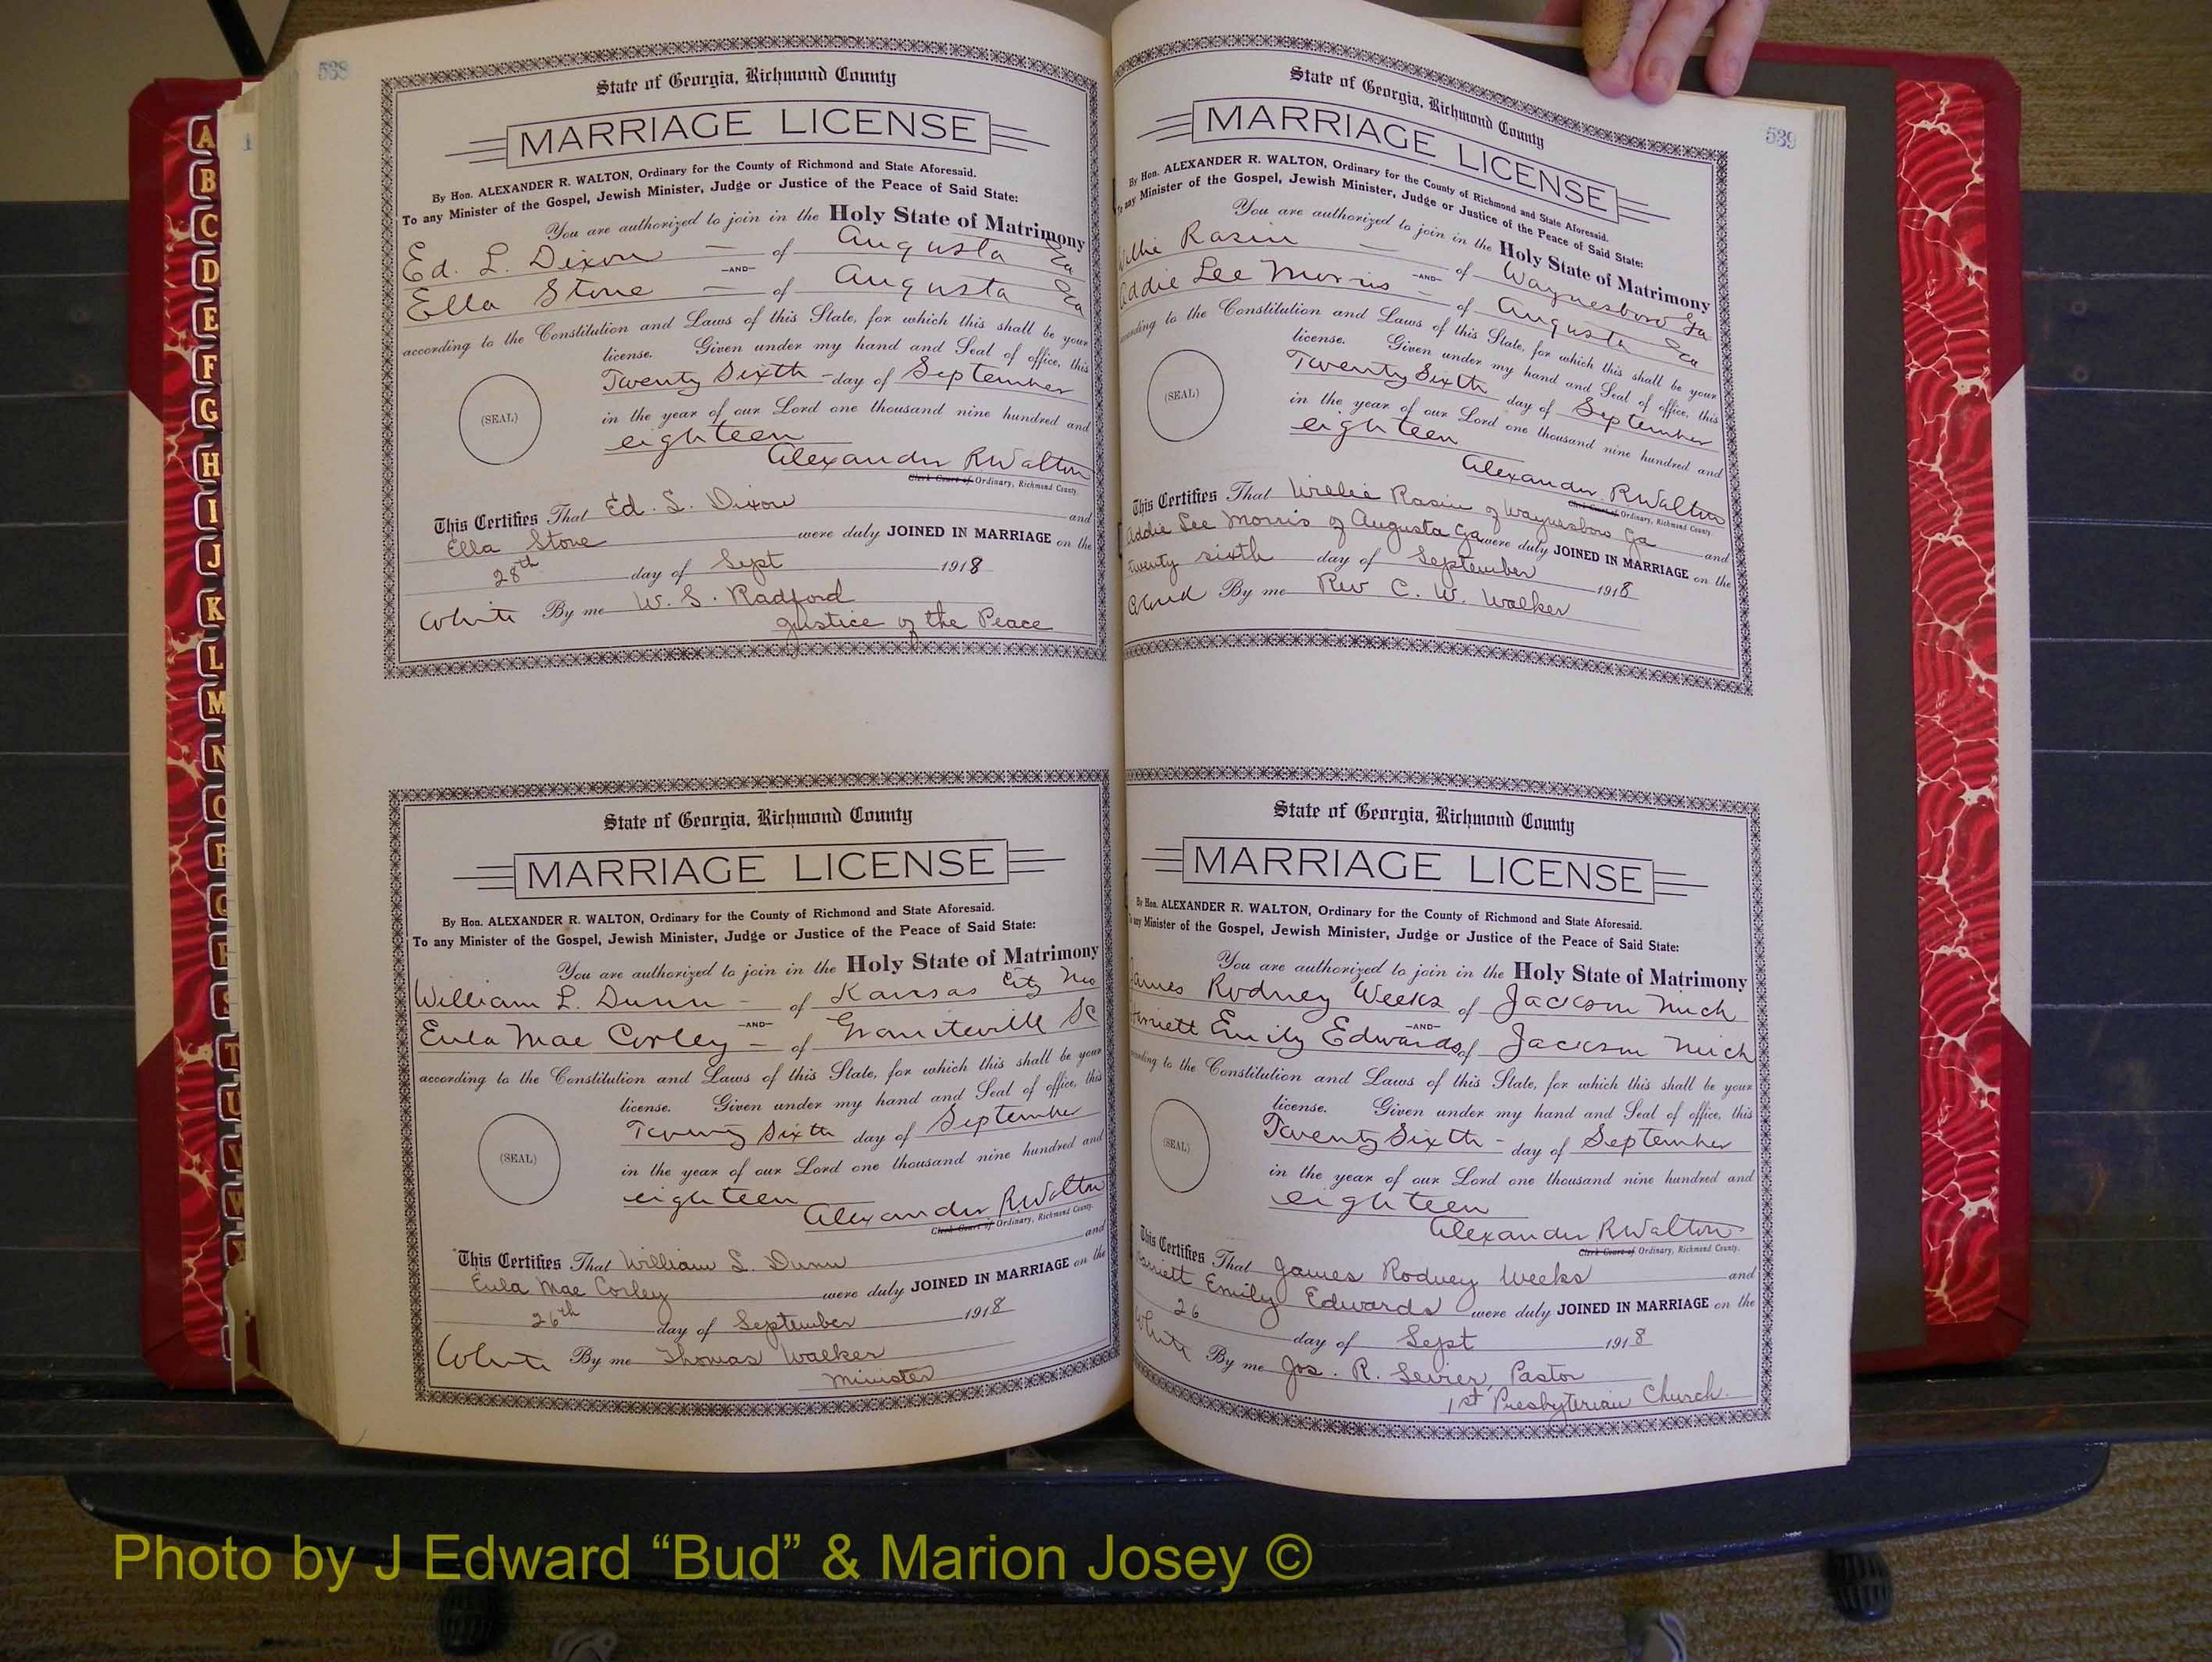 538
State of Georgia, Richmond County
MARRIAGE LICENSE
By Hon. ALEXANDER R. WALTON, Ordinary for the County of Richmond and State Aforesaid.
To any Minister of the Gospel, Jewish Minister, Judge or Justice of the Peace of Said State:
You are authorized to join in the Holy State of Matrimony
Ed. L. Dixon — of Augusta Ga
—AND—
Ella Stone — of Augusta Ga
according to the Constitution and Laws of this State, for which this shall be your
license. Given under my hand and Seal of office, this
Twenty Sixth - day of September
(SEAL)
in the year of our Lord one thousand nine hundred and
eighteen
Alexander R Walton
Clerk Court of Ordinary, Richmond County.
This Certifies That Ed. L. Dixon and
Ella Stone were duly JOINED IN MARRIAGE on the
28th day of Sept 1918
White By me W. S. Radford
Justice of the Peace
State of Georgia, Richmond County
MARRIAGE LICENSE
By Hon. ALEXANDER R. WALTON, Ordinary for the County of Richmond and State Aforesaid.
To any Minister of the Gospel, Jewish Minister, Judge or Justice of the Peace of Said State:
You are authorized to join in the Holy State of Matrimony
William L. Dunn - of Kansas City Mo
—AND—
Eula Mae Corley — of Graniteville SC
according to the Constitution and Laws of this State, for which this shall be your
license. Given under my hand and Seal of office, this
Twenty Sixth day of September
(SEAL)
in the year of our Lord one thousand nine hundred and
eighteen
Alexander R Walton
Clerk Court of Ordinary, Richmond County.
This Certifies That William L. Dunn and
Eula Mae Corley were duly JOINED IN MARRIAGE on the
26th day of September 1918
White By me Thomas Walker
Minister
539
State of Georgia, Richmond County
MARRIAGE LICENSE
By Hon. ALEXANDER R. WALTON, Ordinary for the County of Richmond and State Aforesaid.
To any Minister of the Gospel, Jewish Minister, Judge or Justice of the Peace of Said State:
You are authorized to join in the Holy State of Matrimony
Willie Rasin — of Waynesboro Ga
—AND—
Addie Lee Morris — of Augusta Ga
according to the Constitution and Laws of this State, for which this shall be your
license. Given under my hand and Seal of office, this
Twenty Sixth day of September
(SEAL)
in the year of our Lord one thousand nine hundred and
eighteen
Alexander R Walton
Clerk Court of Ordinary, Richmond County.
This Certifies That Willie Rasin of Waynesboro Ga and
Addie Lee Morris of Augusta Ga were duly JOINED IN MARRIAGE on the
twenty sixth day of September 1918
By me Rev C. W. Walker
State of Georgia, Richmond County
MARRIAGE LICENSE
By Hon. ALEXANDER R. WALTON, Ordinary for the County of Richmond and State Aforesaid.
To any Minister of the Gospel, Jewish Minister, Judge or Justice of the Peace of Said State:
You are authorized to join in the Holy State of Matrimony
James Rodney Weeks of Jackson Mich
—AND—
Harriett Emily Edwards of Jackson Mich
according to the Constitution and Laws of this State, for which this shall be your
license. Given under my hand and Seal of office, this
Twenty Sixth - day of September
(SEAL)
in the year of our Lord one thousand nine hundred and
eighteen
Alexander R Walton
Clerk Court of Ordinary, Richmond County.
This Certifies That James Rodney Weeks and
Harriett Emily Edwards were duly JOINED IN MARRIAGE on the
26 day of Sept 1918
White By me Jos. R. Sevier, Pastor
1st Presbyterian Church.
A
B
C
D
E
F
G
H
I
J
K
L
M
N
O
P
Q
R
S
T
U
V
W
X
Photo by J Edward “Bud” & Marion Josey ©